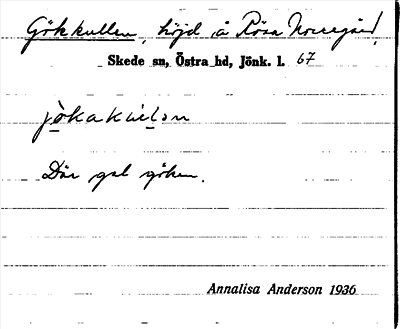 Gökkullen, höjd å Rösa Norregård,
Skede sn, Östra hd, Jönk. l. 67
Där gol göken.
Annalisa Anderson 1936